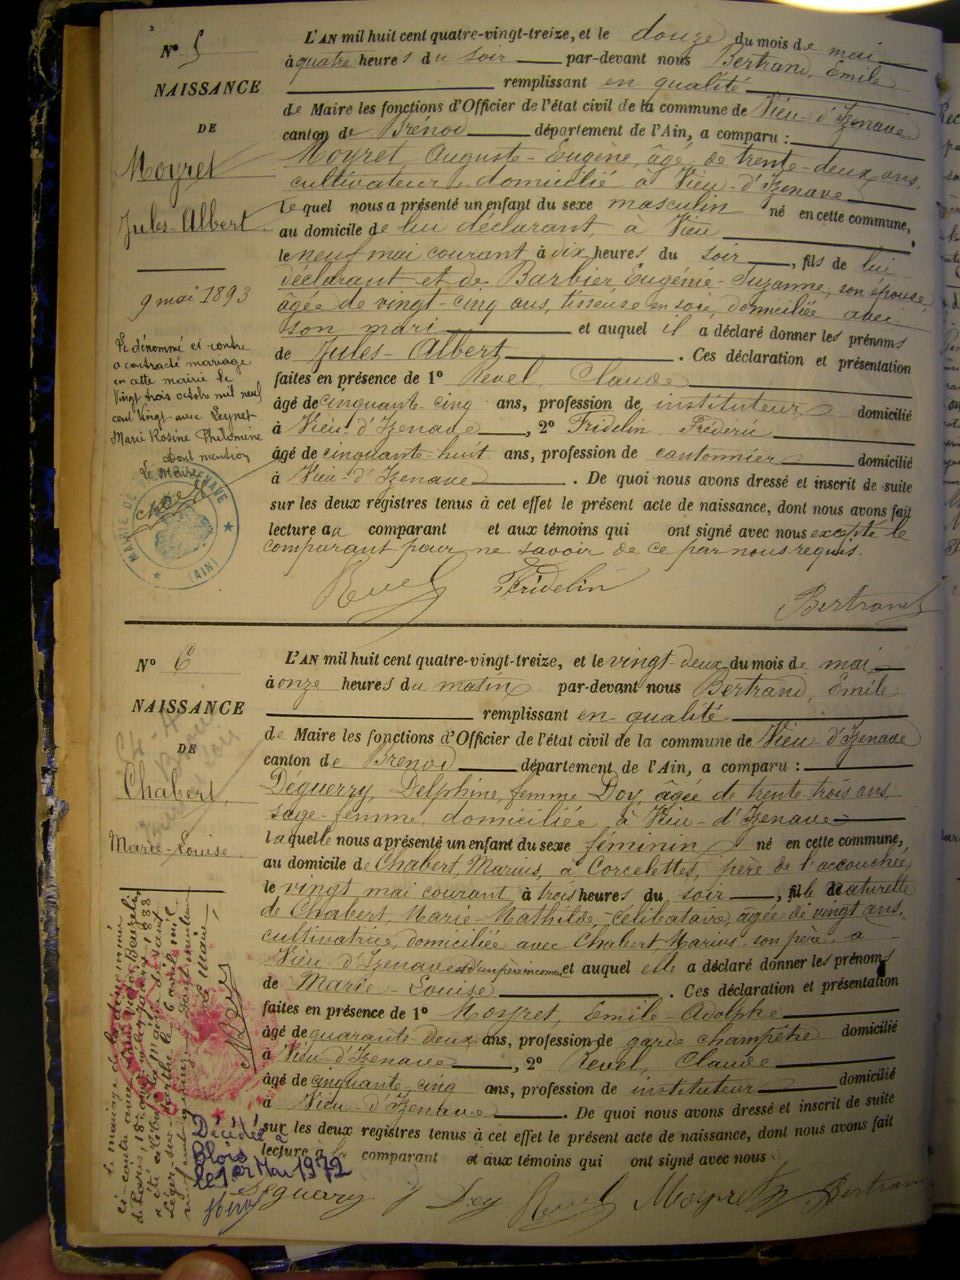 N° 5
NAISSANCE
DE
Moyret
Jules-Albert
9 mai 1893
Le dénommé ci-contre
a contracté mariage
en cette mairie le
Vingt trois octobre mil neuf
cent vingt avec Peynet
Marie Rosine Philomène
Dont mention
Le Maire
MAIRIE DE IZENAVE (AIN)
L'AN mil huit cent quatre-vingt-treize, et le douze du mois de mai
à quatre heures du soir par-devant nous Bertrand, Emile
remplissant en qualité
de Maire les fonctions d'Officier de l'état civil de la commune de Vieu-d'Izenave
canton de Brénod département de l'Ain, a comparu :
Moyret, Auguste-Eugène, âgé de trente-deux ans,
cultivateur, domicilié à Vieu-d'Izenave
lequel nous a présenté un enfant du sexe masculin né en cette commune,
au domicile de lui déclarant, à Vieu
le neuf mai courant à dix heures du soir, fils de lui
déclarant et de Barbier, Eugénie-Suzanne, son épouse
âgée de vingt-cinq ans, tisseuse en soie, domiciliée avec
son mari et auquel il a déclaré donner les prénoms
de Jules-Albert. Ces déclaration et présentation
faites en présence de 1° Revel, Claude
âgé de cinquante-cinq ans, profession de instituteur domicilié
à Vieu-d'Izenave, 2° Fridelin, Frédéric
âgé de cinquante-huit ans, profession de cantonnier domicilié
à Vieu-d'Izenave. De quoi nous avons dressé et inscrit de suite
sur les deux registres tenus à cet effet le présent acte de naissance, dont nous avons fait
lecture au comparant et aux témoins qui ont signé avec nous excepté le
comparant pour ne savoir de ce par nous requis.
Revel Fridelin Bertrand
N° 6
NAISSANCE
DE
Chabert,
Marie-Louise
Décédée à
Blois
le 1er Mai 1972
L'AN mil huit cent quatre-vingt-treize, et le vingt-deux du mois de mai
à onze heures du matin par-devant nous Bertrand, Emile
remplissant en qualité
de Maire les fonctions d'Officier de l'état civil de la commune de Vieu-d'Izenave
canton de Brénod département de l'Ain, a comparu :
Déguerry, Delphine, femme Doy, âgée de trente trois ans
sage-femme, domiciliée à Vieu-d'Izenave
laquelle nous a présenté un enfant du sexe féminin né en cette commune,
au domicile de Chabert, Marius, à Corcelettes, père de l'accouchée
le vingt mai courant à trois heures du soir, fille naturelle
de Chabert, Marie-Mathilde, célibataire, âgée de vingt ans,
cultivatrice, domiciliée avec Chabert Marius son père, à
Vieu d'Izenave et d'un père inconnu, et auquel elle a déclaré donner les prénoms
de Marie-Louise. Ces déclaration et présentation
faites en présence de 1° Moyret, Emile-Adolphe
âgé de quarante deux ans, profession de garde champêtre domicilié
à Vieu d'Izenave, 2° Revel, Claude
âgé de cinquante-cinq ans, profession de instituteur domicilié
à Vieu-d'Izenave. De quoi nous avons dressé et inscrit de suite
sur les deux registres tenus à cet effet le présent acte de naissance, dont nous avons fait
lecture à la comparant et aux témoins qui ont signé avec nous
Déguerry f Doy Revel Moyret Bertrand